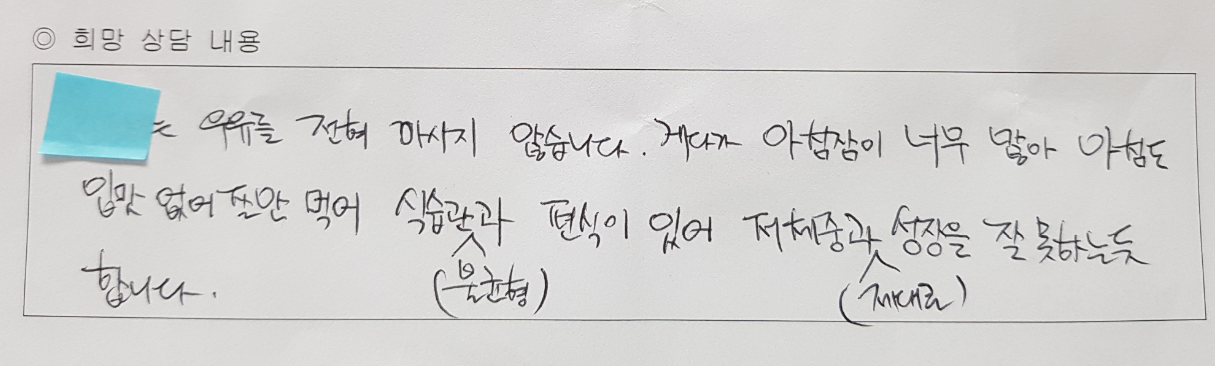 ◎ 희망 상담 내용
는 우유를 전혀 마시지 않습니다. 게다가 아침잠이 너무 많아 아침도
입맛 없어 조금만 먹어 식습관과 편식이 있어 저체중과 성장을 잘 못하는듯
(불균형) (제대로)
합니다.